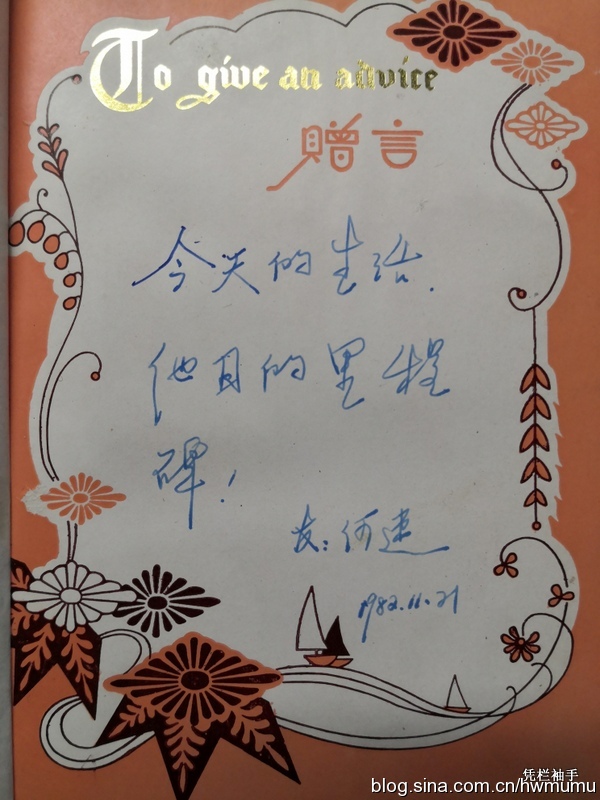 To give an advice
贈言
今天的生活.
他日的里程
碑!
友:何建
1982.11.21
凭栏袖手
blog.sina.com.cn/hwmumu